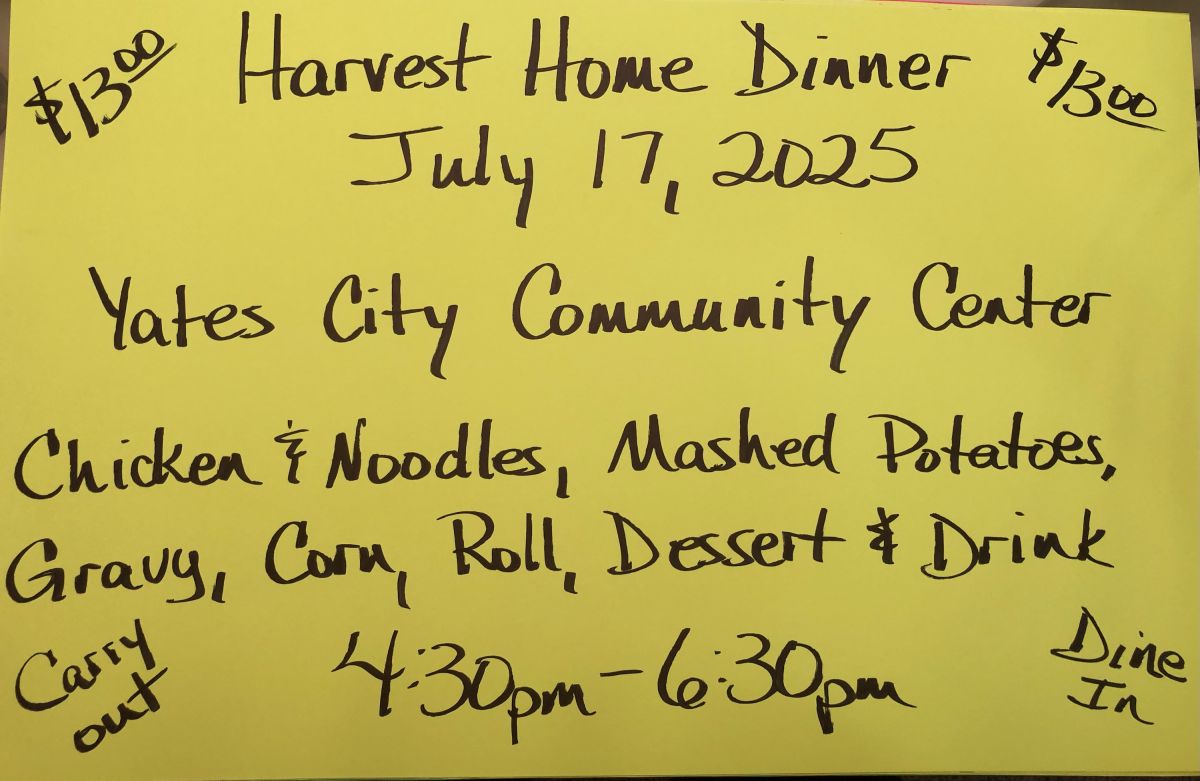 $13.00 Harvest Home Dinner $13.00
July 17, 2025
Yates City Community Center
Chicken & Noodles, Mashed Potatoes,
Gravy, Corn, Roll, Dessert & Drink
Carry out
4:30pm - 6:30pm
Dine In